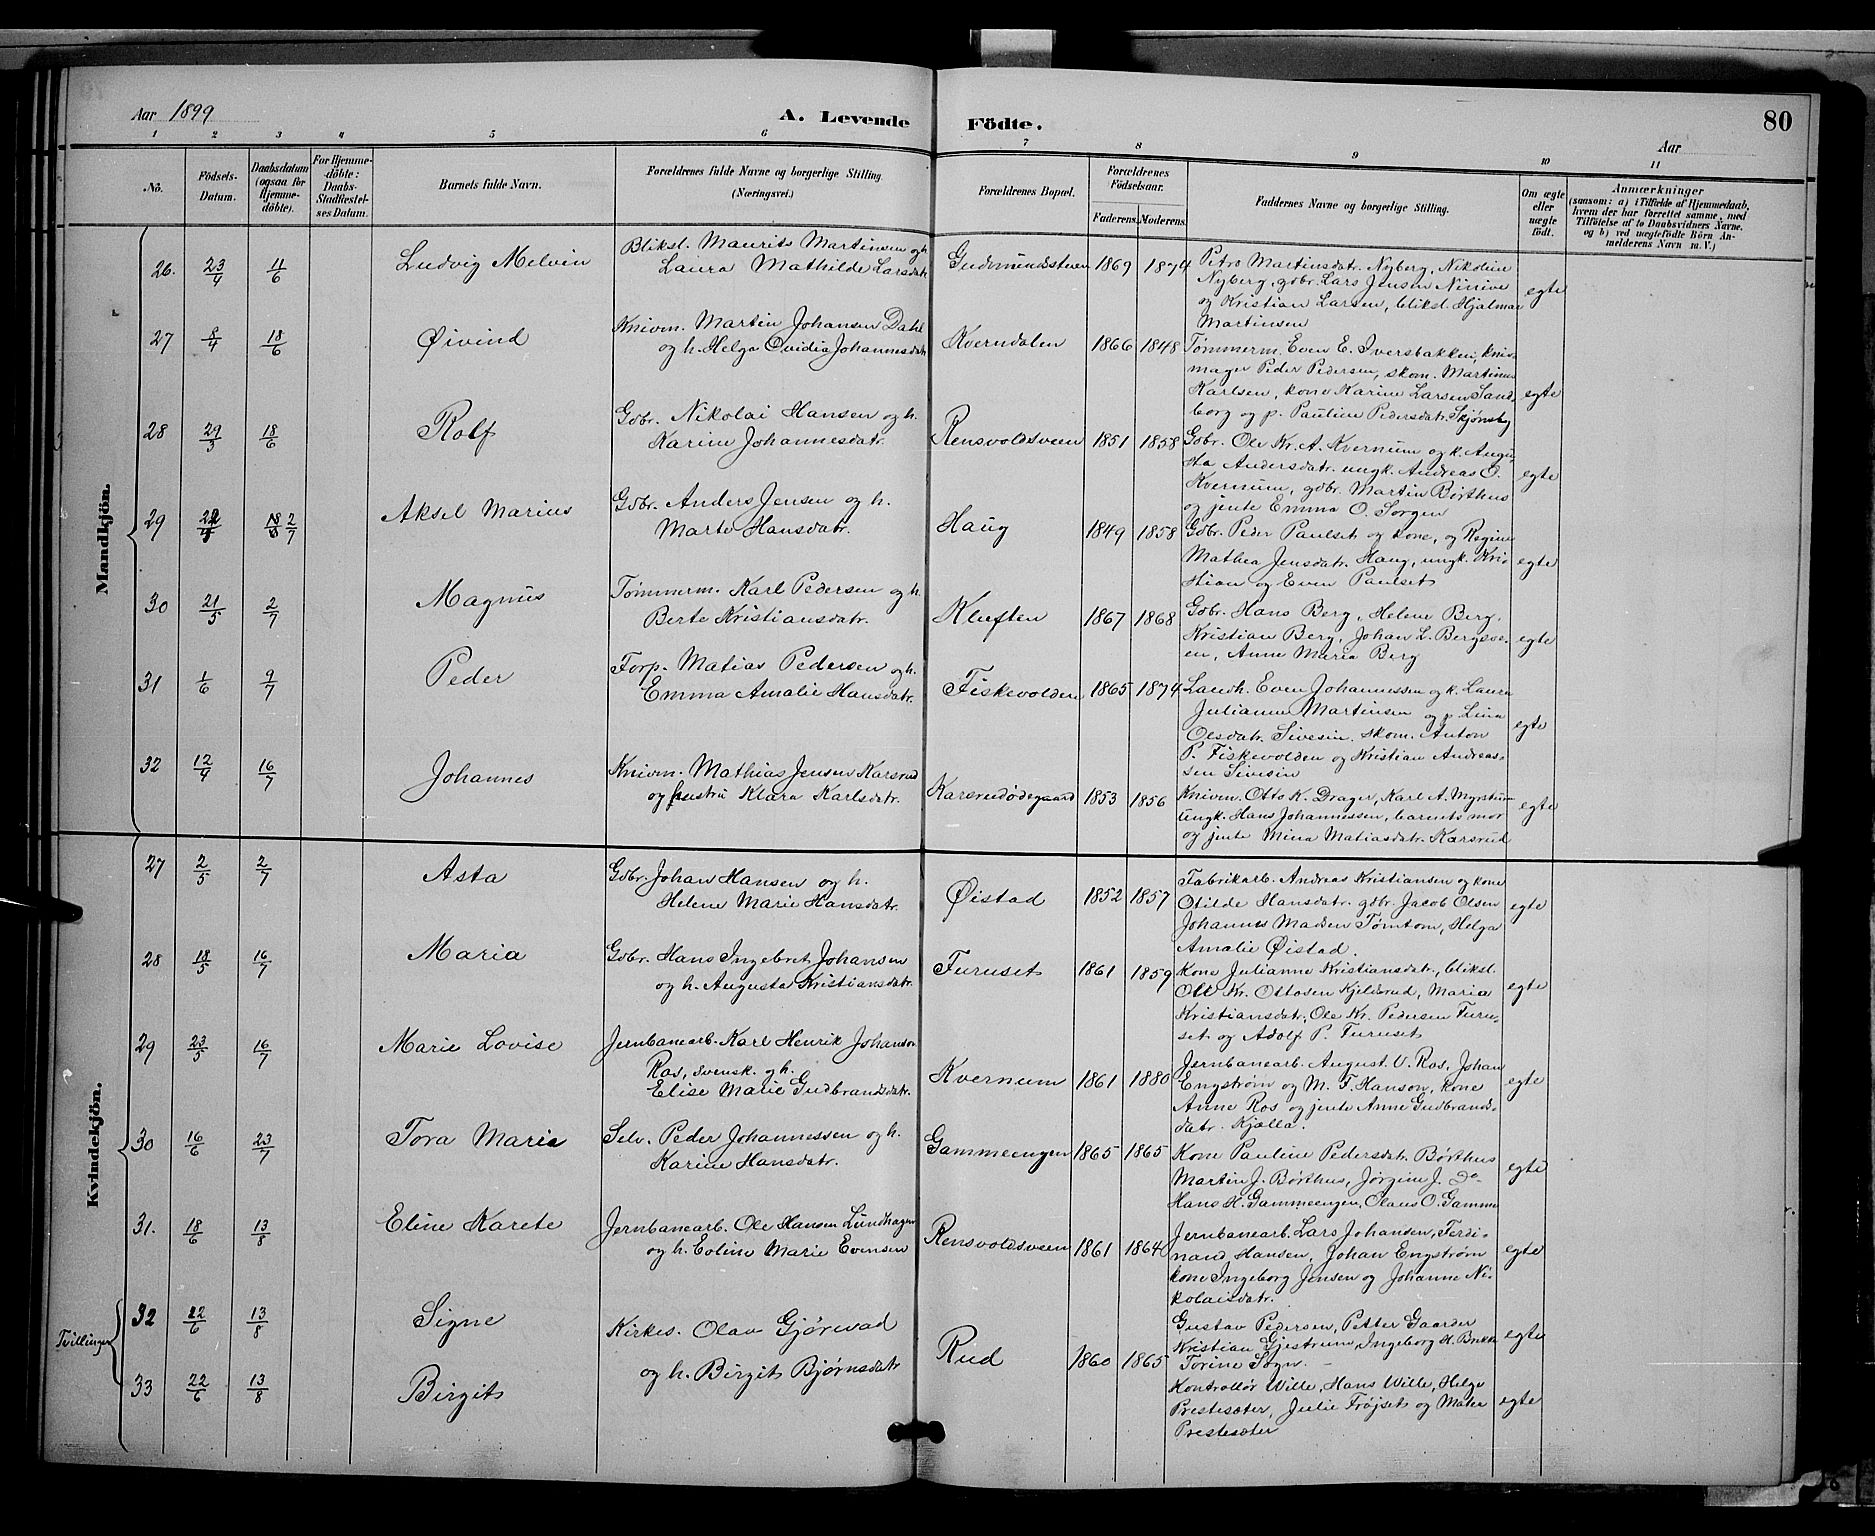 Aar 1899
A. Levende Födte.
80
Aar
1 2 3 4 5 6 7 8 9 10 11
No.
Födsels-Datum.
Daabsdatum (ogsaa for Hjemme-döbte).
For Hjemme-döbte: Daabs-Stadfæstel-ses Datum.
Barnets fulde Navn.
Forældrenes fulde Navne og borgerlige Stilling (Næringsvei.)
Forældrenes Bopæl.
Forældrenes Födselsaar.
Faderens. Moderens.
Faddernes Navne og borgerlige Stilling.
Om ægte eller uægte födt.
Anmærkninger
(saasom: a) i Tilfælde af Hjemmedaab, hvem der har forrettet samme, med Tilföielse af to Daabsvidners Navne. og b) ved uægtefödte Börn An-melderens Navn m. V.)
Mandkjön.
26. 23/4 11/6 Ludvig Melvin
Bliksl. Maurits Martinsen og h.
Laura Mathilde Larsdatr.
Gudmundsteen 1869 1874
Petra Martinsdatr. Nyberg, Nikoline
Nyberg, gdbr. Lars Jensen Ninive
og Kristian Larsen, bliksl. Hjalmar
Martinsen
egte
27 8/4 18/6 Øivind
Knivm. Martin Johansen Dahl
og h. Helga Ovidia Johannesdatr.
Kverndalen 1866 1848
Tømmerm. Even E. Iversbakken, kniv-
mager Peder Pedersen, skom. Martinus
Karlsen, kone Karine Larsen Sand
borg og p. Pauline Pedersdatr. Skjønsby
egte
28 29/3 18/6 Rolf
Gdbr. Nikolai Hansen og h.
Karine Johannesdatr.
Rensvoldsveen 1851 1858
Gdbr. Ole Kr. A. Kvernum og k. Augu-
sta Andersdatr. ungk. Andreas O.
Kvernum, gdbr. Martin Børthus
og jente Emma O. Sorgen
egte
29 2/7 Aksel Marius
Gdbr. Anders Jensen og h.
Marte Hansdatr.
Haug 1849 1858
Gdbr. Peder Paulset og kone, og Regine
Mathea Jensdatr. Haug, ungk. Kri-
stian og Even Paulset
egte
30 21/5 2/7 Magnus
Tømmerm. Karl Pedersen og h.
Berte Kristiansdatr.
Kluften 1867 1868
Gdbr. Hans Berg, Helene Berg,
Kristian Berg, Johan L. Bergsve-
en, Anne Maria Berg
egte
31 1/6 9/7 Peder
Forp. Matias Pedersen og h.
Emma Amalie Hansdatr.
Fiskevolden 1865 1874
Landh. Even Johannessen og k. Laura
Julianne Martinsen og p. Lina
Olsdatr. Sivesin, skom. Anton
P. Fiskevolden og Kristian Andreas-
sen Sivesin
egte
32 12/4 16/7 Johannes
Knivm. Mathias Jensen Karsrud
og hustru Klara Karlsdatr.
Karsrudødegaard 1853 1856
Knivm. Otto K. Drager, Karl A. Myrstu-
ungk. Hans Johannessen, barnets mor
og jente Mina Matiasdatr. Karsrud
egte
Kvindekjön.
27 2/5 2/7 Asta
Gdbr. Johan Hansen og h.
Helene Marie Hansdatr.
Øistad 1852 1857
Fabrikarb. Andreas Kristiansen og kone
Otilde Hansdatr. gdbr. Jacob Olsen
Johannes Madsen Tømtom, Helga
Amalie Øistad.
egte
28 18/5 16/7 Maria
Gdbr. Hans Ingebret Johansen
og h. Augusta Kristiansdatr.
Furuset 1861 1859
Kone Julianne Kristiansdatr., bliksl.
Ole Kr. Ottosen Kjeldsrud, Maria
Kristiansdatr, Ole Kr. Pedersen Furu-
set og Adolf P. Furuset
egte
29 23/5 16/7 Marie Lovise
Jernbanearb. Karl Henrik Johanson
Ros, svensk. og h.
Elise Marie Gudbrandsdatr.
Kvernum 1861 1880
Jernbanearb. August V. Ros, Johan
Engstrøm og M. F. Hanson, kone
Anne Ros og jente Anne Gudbrands-
datr. Kjølla.
egte
30 16/6 23/7 Tora Marie
Selv. Peder Johannessen og h.
Karine Hansdatr.
Gammeengen 1865 1865
Kone Pauline Pedersdatr. Børthus
Martin J. Børthus, Jørgine J. Do
Hans H. Gammeengen, Olaus O. Gamme
egte
31. 18/6 13/8 Eline Karete
Jernbanearb. Ole Hansen Lundhagen
og h. Eoline Marie Evensen
Rensvoldsveen 1861 1864
Jernbanearb. Lars Johansen, Ferdi-
nand Hansen, Johan Engstrøm
kone Ingeborg Jensen og Johanne Ni-
kolaisdatr.
egte
Tvillinger
32 22/6 13/8 Signe
Kirkes. Olav Gjørevad
og h. Birgit Bjørnsdatr
Rud 1860 1865
Gustav Pedersen, Petter Gaarder
Kristian Gjestrum, Ingeborg H. Brekke
Torine Sogn.
egte
33 22/6 13/8 Birgit
Kontrollør Wille, Hans Wille, Helge
Prestesæter, Julie Frøjset og Mater
Prestesæter
egte